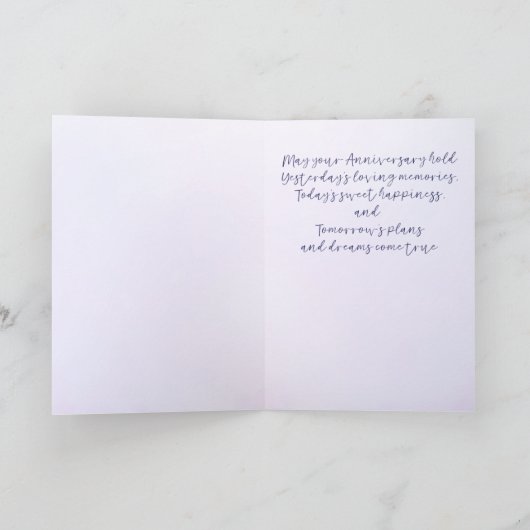 May your Anniversary hold
Yesterday's loving memories,
Today's sweet happiness,
and
Tomorrow's plans
and dreams come true